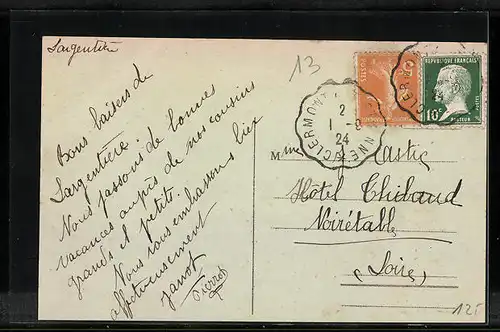 Largentière
Bons baisers de
Largentière
Nous passons de bonnes
vacances auprès de nos cousins
grands et petits.
Nous vous embrassons bien
affectueusement
Janot
Pierrot
13
REPUBLIQUE FRANÇAISE
POSTES
10c
PASTEUR
CLERMONT
2
1 - 8
24
Mme Castic
Hôtel Thibaud
Noirétable
(Loire)
12F